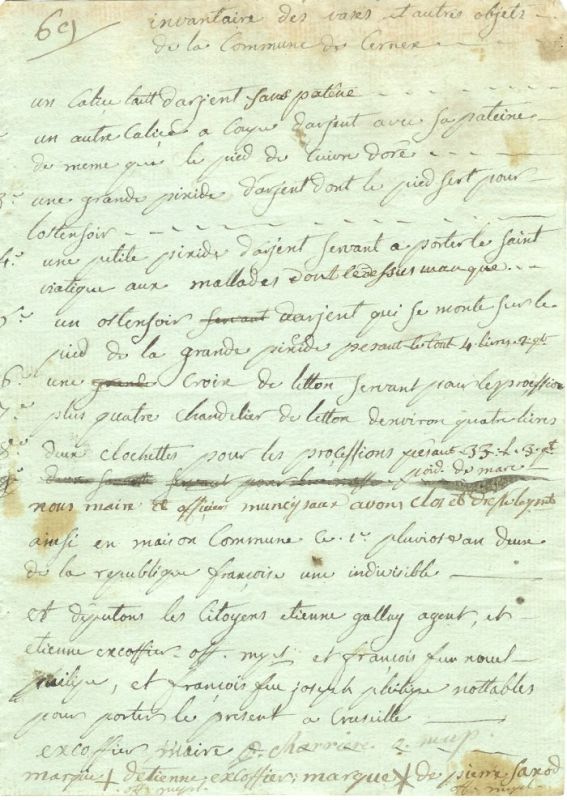 69
invantaire des vases et autres objets
de la Commune de Cernex
un Calice tout d'arjent sans patène
un autre Calice a Coupe d'arjent avec sa pateine
de meme que le pied de Cuivre doré
3° une grande pixide d'arjent dont le pied sert pour
l'ostensoir
4° une petite pixide d'arjent servant a porter le saint
viatique aux mallades dont le dessus manque
5° un ostensoir servant d'arjent qui se monte sur le
pied de la grande pixide pesant le tout 4 livres
6° une grande Croix de letton servant pour le procession
7° plus quatre chandelier de letton d'environ quatre livres
8° deux clochettes pour les procéssions pesant 33 L 3
poid de marc
9°
nous maire et officiers municipaux avons clos et
ainsi en maison Commune Ce 1r pluviose an deux
de la republique françoise une indivisible
et députons les Citoyens etienne galluy agent, et
etienne excoffier off. mpl et françois feu nouel
philipe, et françois feu joseph philipe nottables
pour porter le present a Cruseille
excoffier maire Charriere
marque + d'etienne excoffier marque + de pierre Savod
off. mpl. off. mpl.